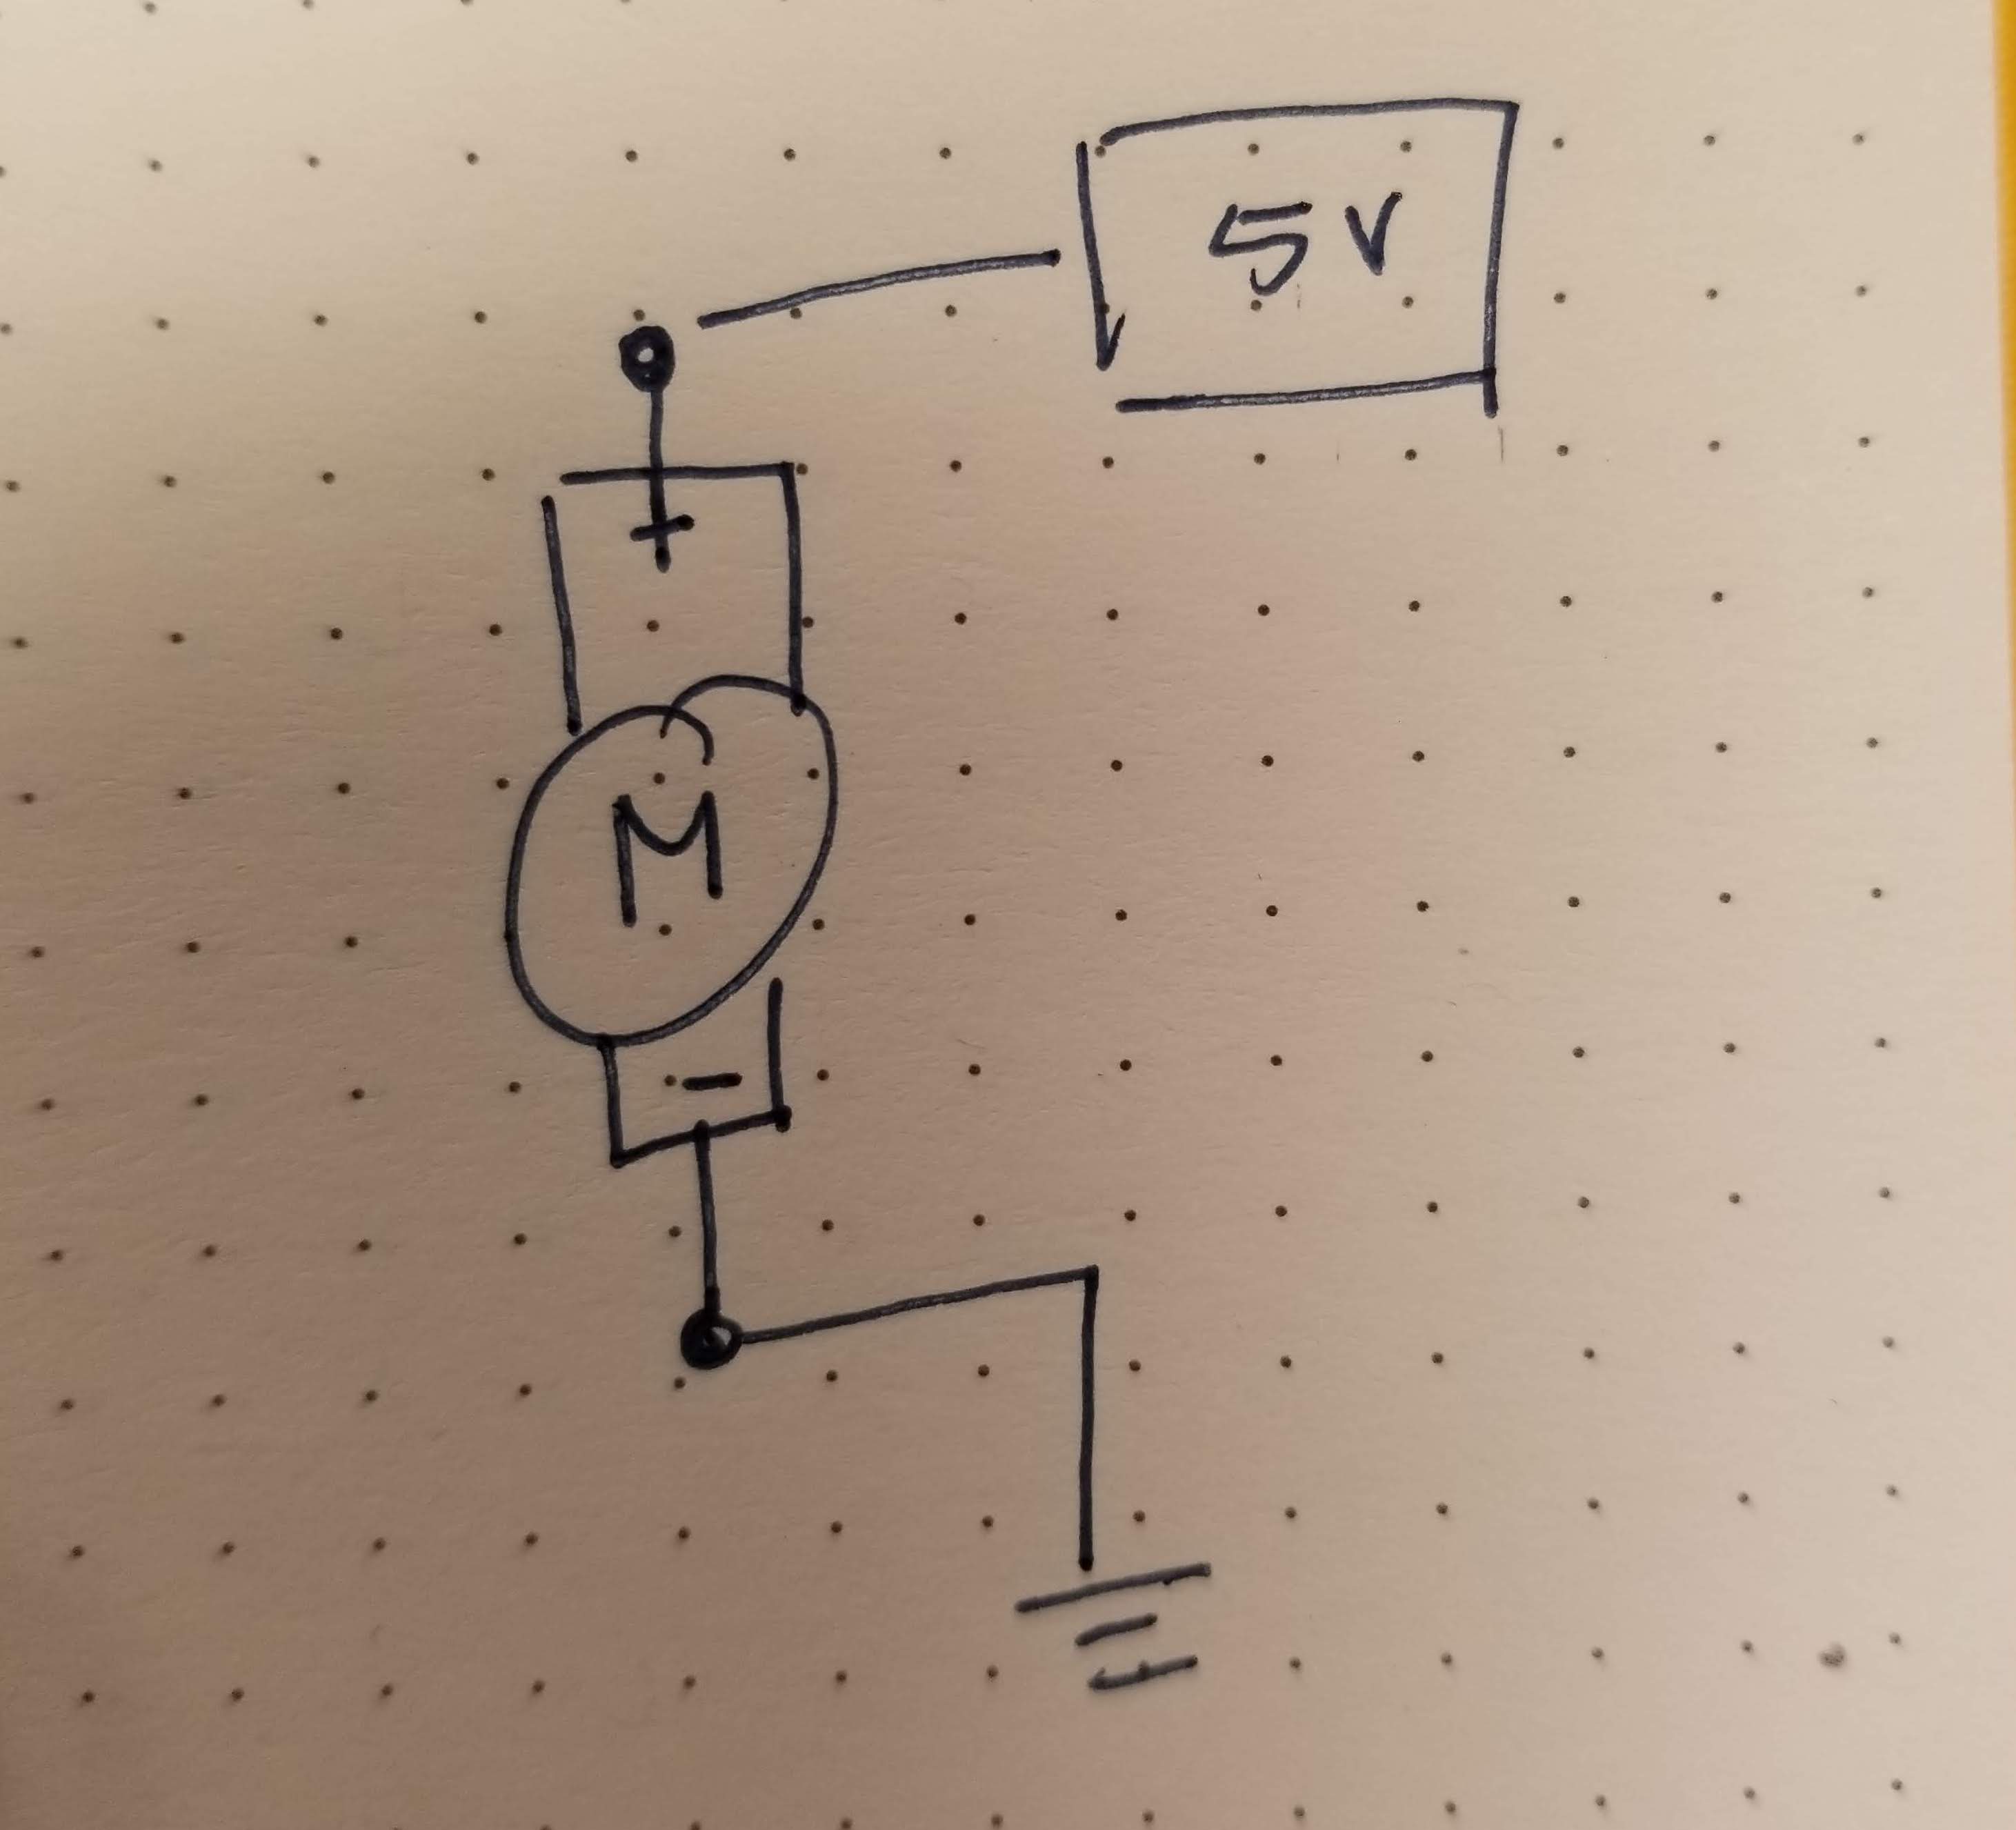 5V
+
M
-